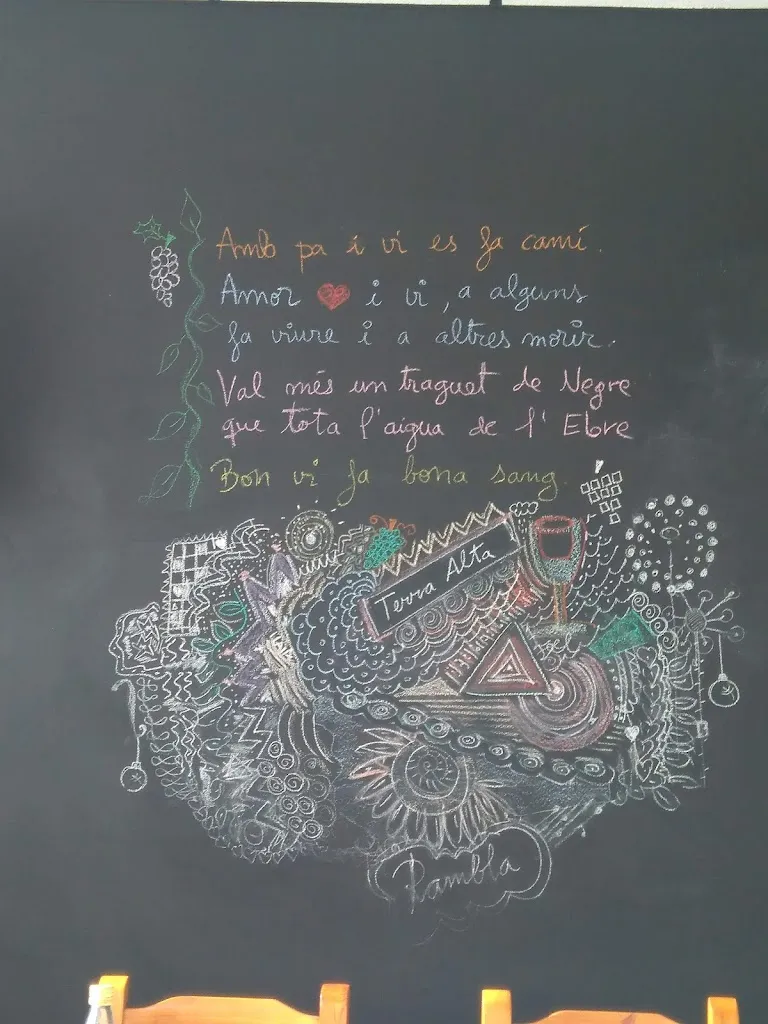 Amb pa i vi es fa camí.
Amor i vi, a alguns
fa viure i a altres morir.
Val més un traguet de Negre
que tota l'aigua de l'Ebre
Bon vi fa bona sang.
Terra Alta
Rambla